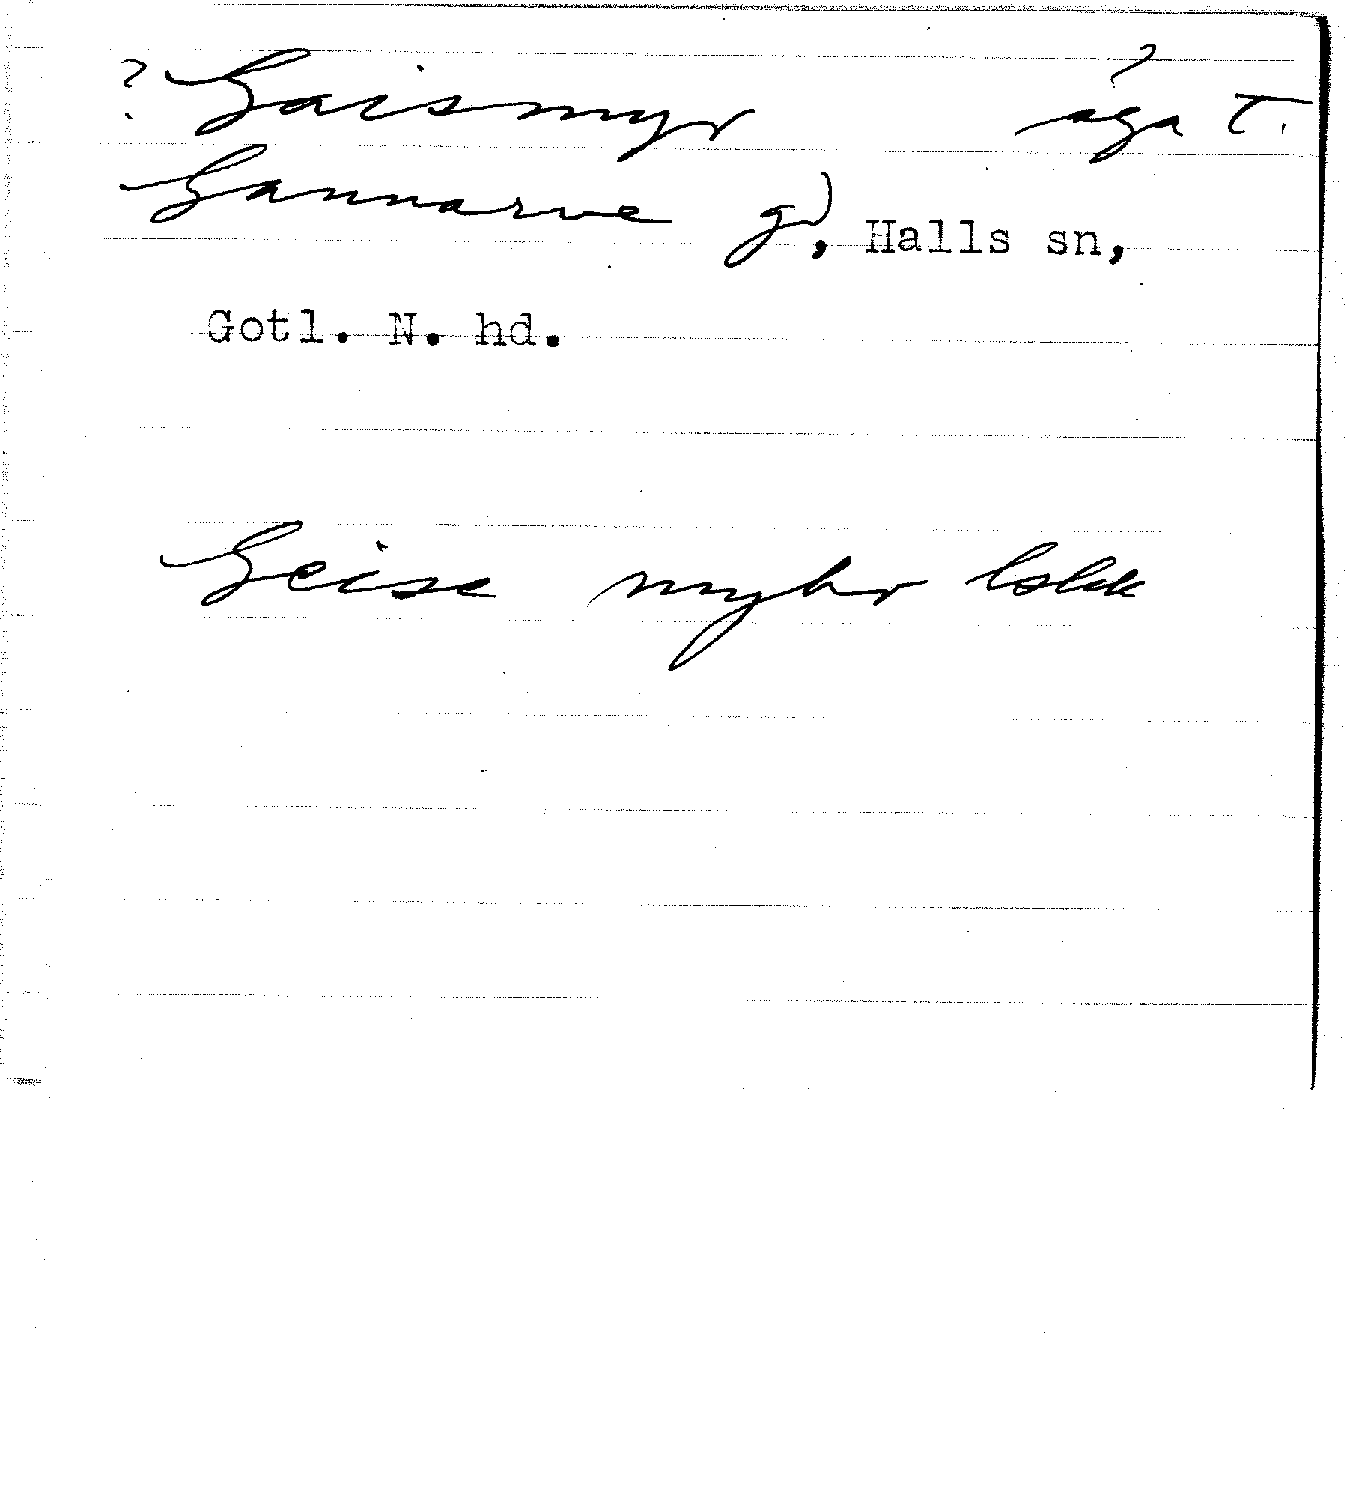 ? Gaismyr äga t.
Gannarve g), Halls sn,
Gotl. N. hd.
Geise myhr